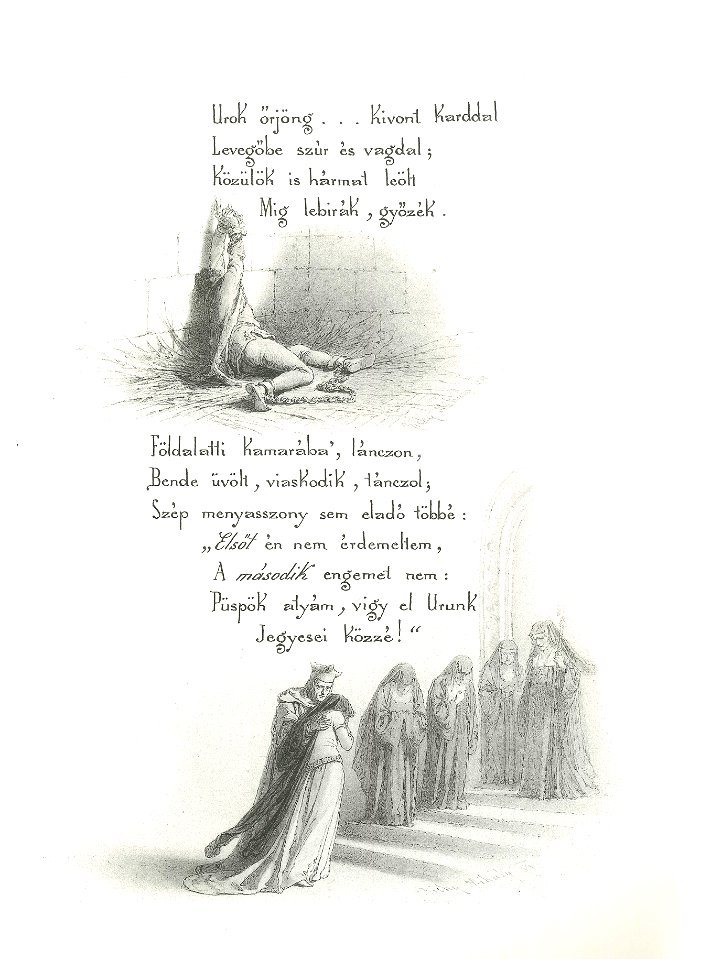 Urok őrjöng . . . kivont karddal
Levegőbe szúr és vagdal;
Közülök is hármat leölt
Mig lebirák, győzék.
Földalatti kamarába', lánczon,
Bende üvölt, viaskodik, tánczol;
Szép menyasszony sem eladó többé:
„Elsőt én nem érdemeltem,
A második engemet nem:
Püspök atyám, vigy el Urunk
Jegyesei közzé!“